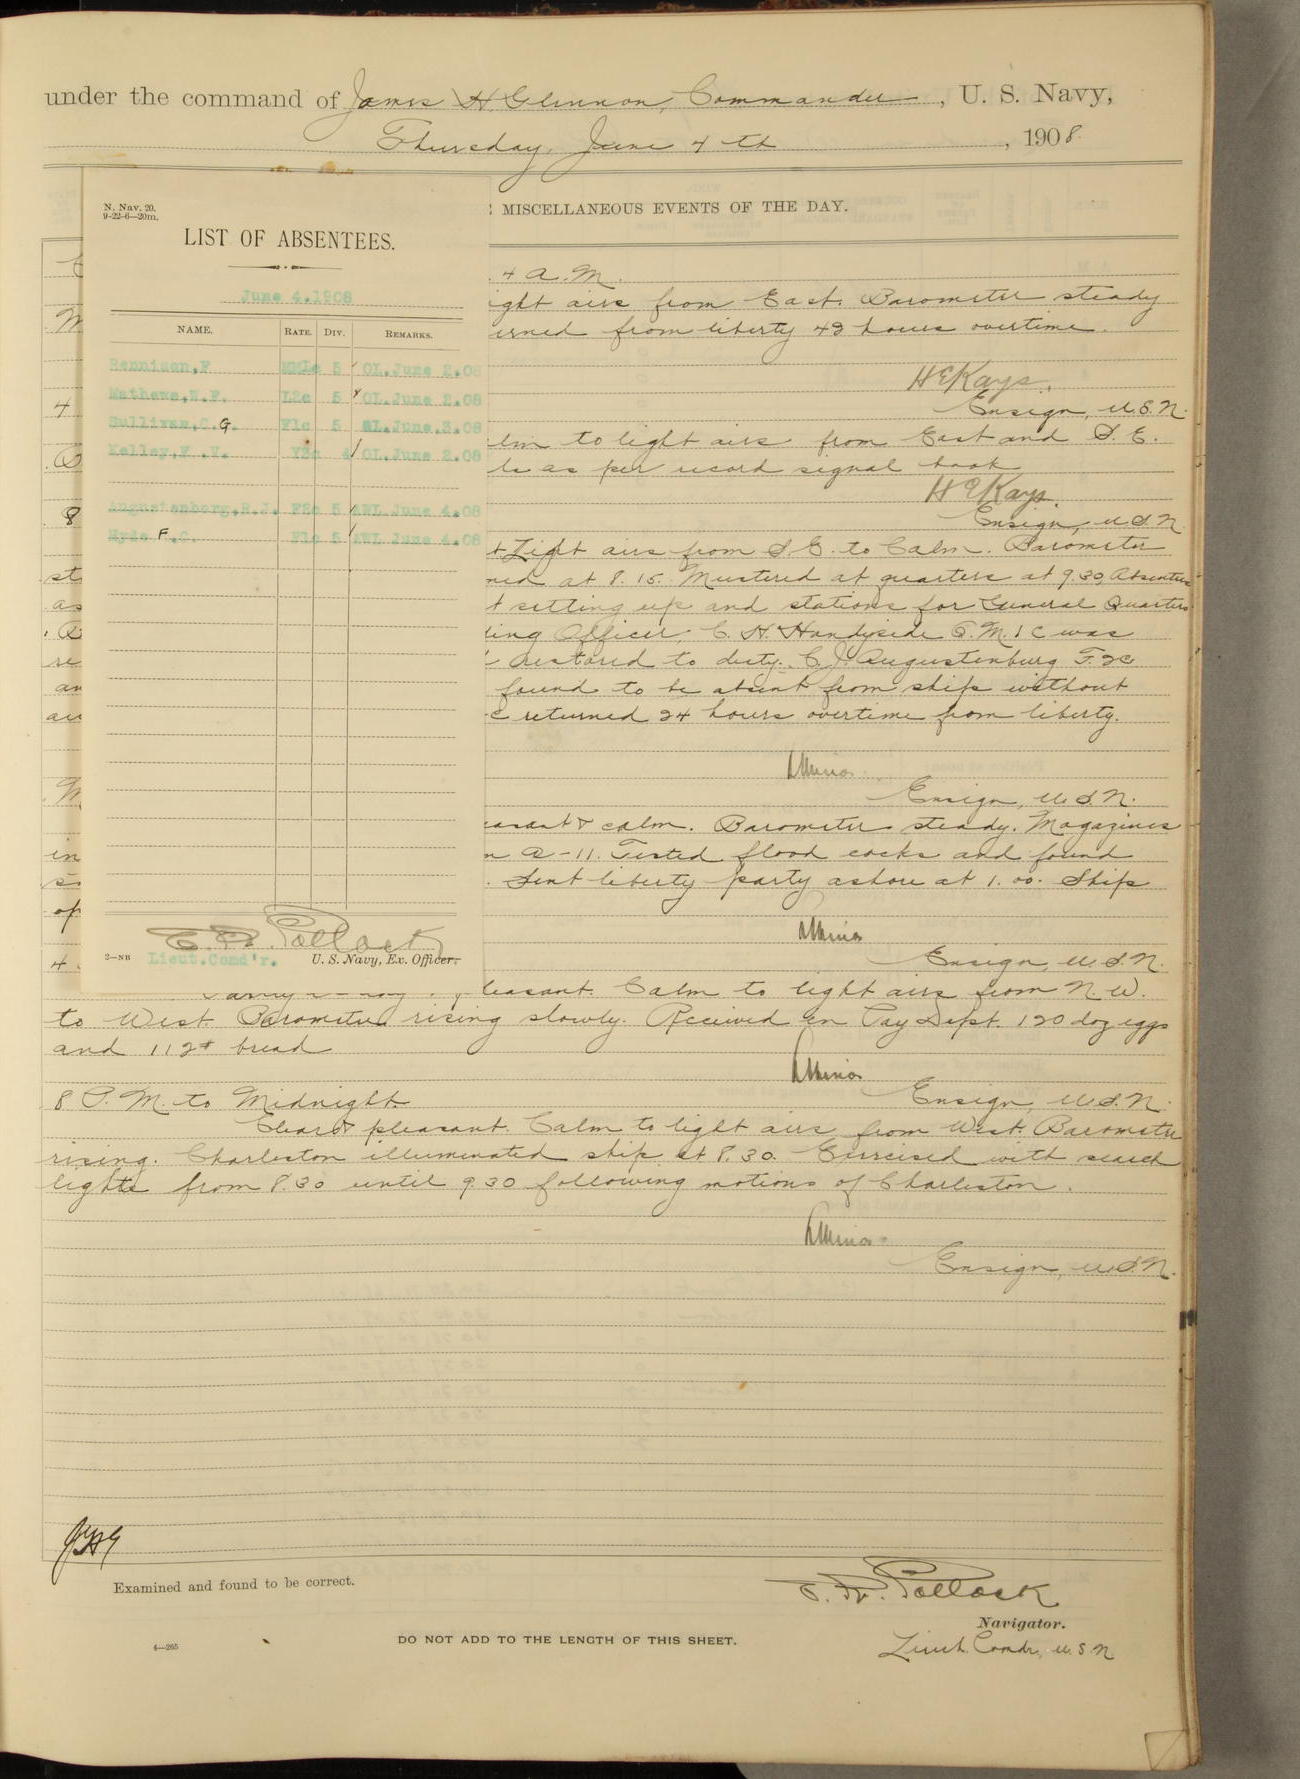 under the command of James H. Glennon, Commander, U. S. Navy,
Thursday, June 4th, 1908
N. Nav. 20.
9-22-6—20m.
LIST OF ABSENTEES.
June 4,1908
NAME. RATE. DIV. REMARKS.
Rennixen,F 5 OL.June 2.08
Mathews,W.F. L2c 5 OL.June 2.08
Sullivan,C.G. F1c 5 June.3.08
Kelley,F.W. Y2c 4 OL.June 2.08
Augustenborg,R.J. F2c 5 AWL June 4.08
Hyde F.C. F1c 5 AWL June 4.08
E. F. Pollock
2—NB Lieut.Comd'r. U. S. Navy, Ex. Officer.
MISCELLANEOUS EVENTS OF THE DAY.
4 A.M.
ight airs from East. Barometer steady
urned from liberty 43 hours overtime.
H E Kays.
Ensign, U.S.N.
4
lm to light airs from East and S.E.
ls as per record signal book
H E Kays.
Ensign, U.S.N.
8
t Light airs from S.E. to Calm. Barometer
ned at 8.15. Mustered at quarters at 9.30, Absentees
t setting up and stations for General Quarters
ding Officer. C. H. Handyside G.M.1C was
restored to duty. C. J. Augustenburg F.2C
found to be absent from ship without
c returned 24 hours overtime from liberty.
Ensign, U.S.N.
easant & calm. Barometer steady. Magazines
in A-11. Tested flood cocks and found
. Sent liberty party ashore at 1.00. Ship
Ensign, U.S.N.
pleasant. Calm to light airs from N.W.
to West. Barometer rising slowly. Received in Pay Dept. 120 doz eggs
and 112# bread
Ensign, U.S.N.
8 P.M. to Midnight.
Clear & pleasant. Calm to light airs from West. Barometer
rising. Charleston illuminated ship at 8.30. Exercised with search
lights from 8.30 until 9.30 following motions of Charleston.
Ensign, U.S.N.
JHG
Examined and found to be correct.
E. F. Pollock
Navigator.
Lieut. Comdr, U.S.N.
4—265
DO NOT ADD TO THE LENGTH OF THIS SHEET.